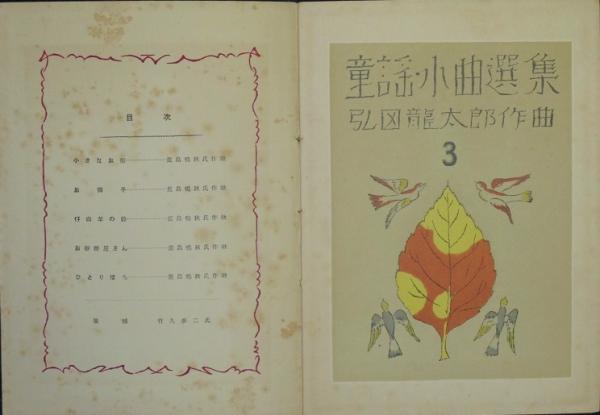 目次
小さなお 鹿島鳴秋氏作歌
鹿島鳴秋氏作歌
仔山羊の 鹿島鳴秋氏作歌
屋さん 鹿島鳴秋氏作歌
ひとりぼち 鹿島鳴秋氏作歌
装幀 竹久夢二氏
童謡・小曲選集
弘田龍太郎作曲
3